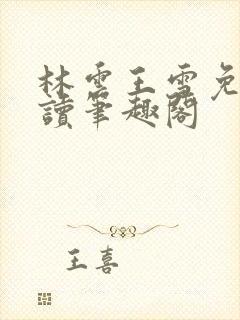 林雲王雪免
讀筆趣閣
王喜